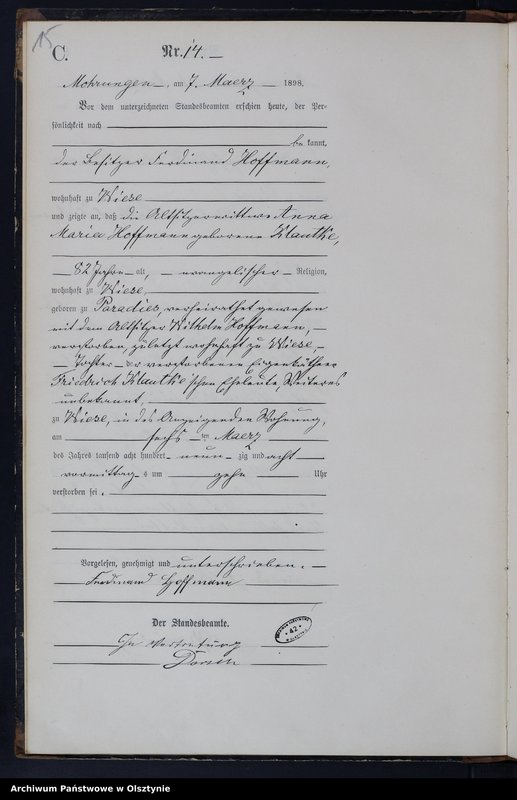 15
C.
Nr. 14. —
Mohrungen —, am 7. Maerz — 1898.
Vor dem unterzeichneten Standesbeamten erschien heute, der Per-
sönlichkeit nach
be kannt,
der Besitzer Ferdinand Hoffmann,
wohnhaft zu Wiese
und zeigte an, daß die Altsitzerwittwe Anna
Maria Hoffmann geborene Klautke,
— 82 Jahre — alt, — evangelischer — Religion,
wohnhaft zu Wiese,
geboren zu Paradies, verheirathet gewesen
mit dem Altsitzer Wilhelm Hoffmann, —
verstorben, zuletzt wohnhaft zu Wiese —
— Tochter — der verstorbenen Eigenkäthner
Friedrich Klautke'schen Eheleute, Weiteres
unbekannt,
zu Wiese, in des Anzeigenden Wohnung,
am sechs ten Maerz
des Jahres tausend acht hundert neun zig und acht
vormittag s um zehn Uhr
verstorben sei.
Vorgelesen, genehmigt und unterschrieben. —
Ferdinand Hoffmann
Der Standesbeamte.
In Vertretung
42
Archiwum Państwowe w Olsztynie